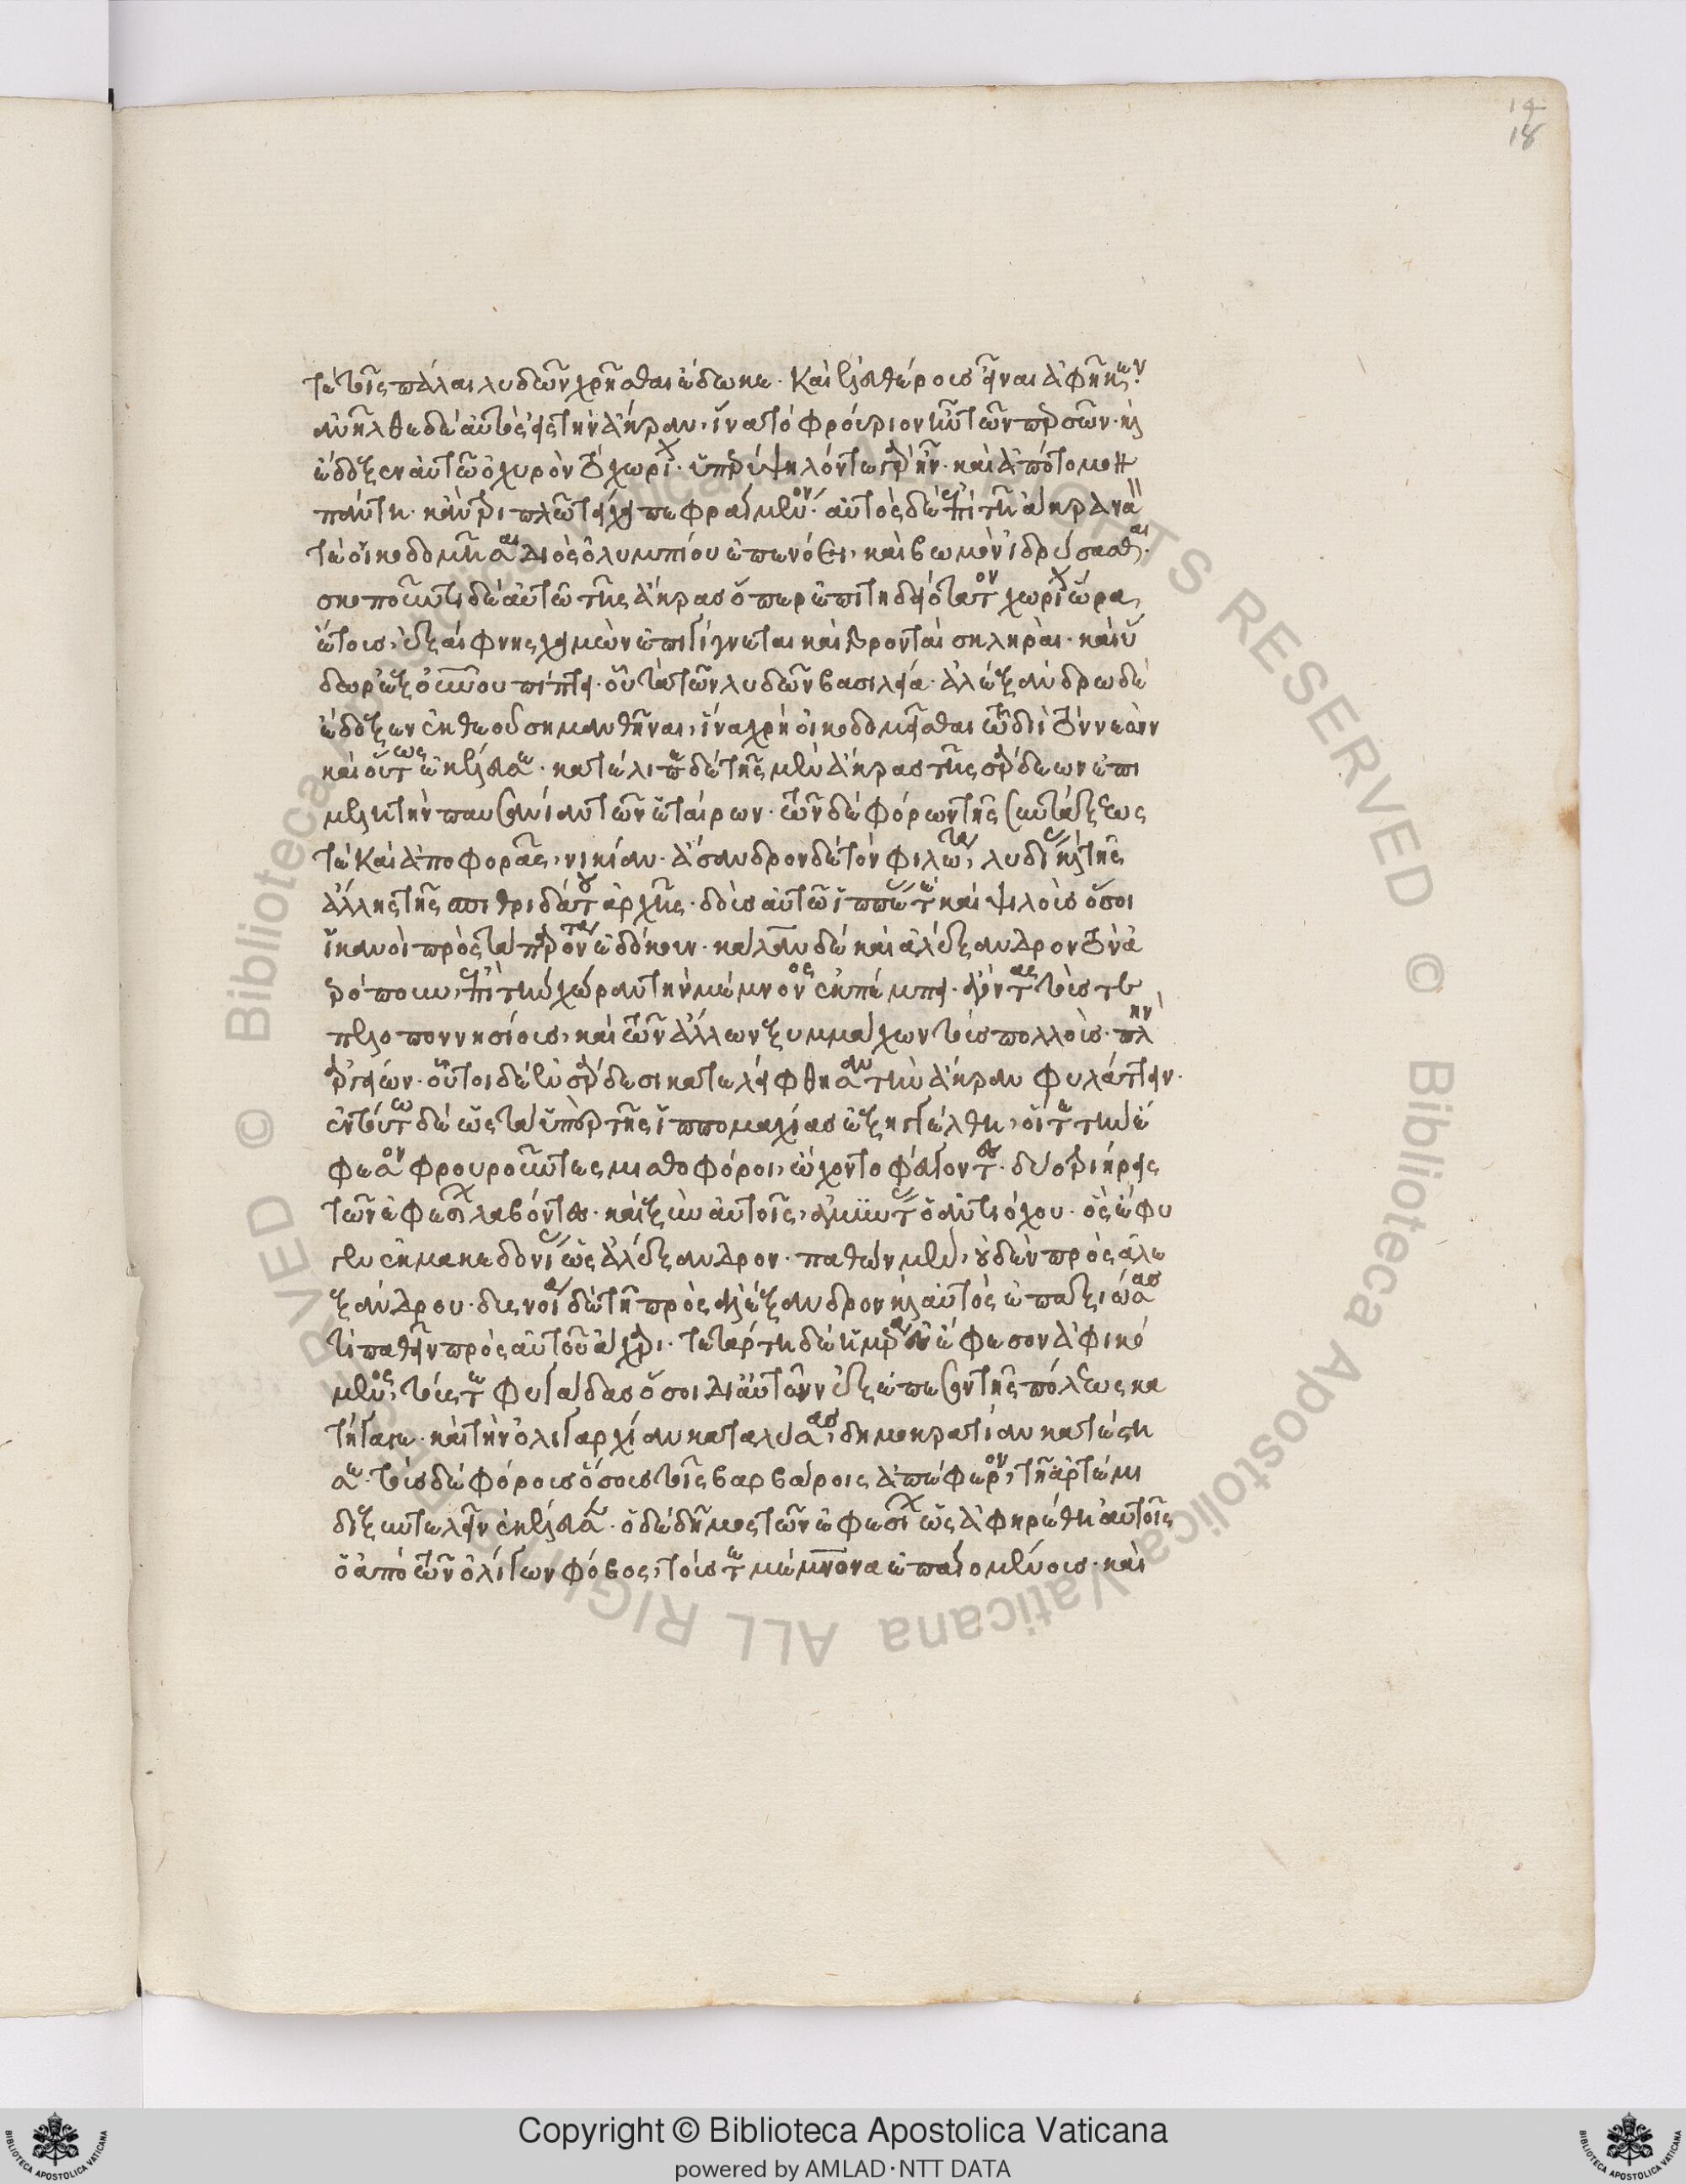 τε τοῖς πάλαι λυδῶν χρῆσθαι ἔδωκε. καὶ ἐλευθέρους εἶναι ἀφῆκεν.
ἀνῆλθε δὲ αὐτὸς εἰς τὴν ἄκραν, ἵνα τὸ φρούριον ἦν τῶν περσῶν. καὶ
ἔδοξεν αὐτῶ ὀχυρὸν τὸ χωρίον. ὑπερύψηλόν τε γὰρ ἦν. καὶ ἀπότομον
πάντη. καὶ τριπλῶ τείχει πεφραγμένον. αὐτὸς δὲ ἐπὶ τῆ ἄκρα ναόν
τε οἰκοδομῆσαι διὸς ὀλυμπίου ἐπενόει, καὶ βωμὸν ἱδρύσασθαι.
σκοποῦντι δὲ αὐτῶ τῆς ἄκρας ὅπερ ἐπιτηδειότατον χωρίον ὥρα
ἔτους, ἐξαίφνης χειμὼν ἐπιγίγνεται καὶ βρονταὶ σκληραὶ. καὶ ὕ
δωρ ἐξ οὐρανοῦ πίπτει. οὗ τὰ τῶν λυδῶν βασίλεια. ἀλεξάνδρω δὲ
ἔδοξεν ἐκ θεοῦ σημανθῆναι, ἵνα χρὴ οἰκοδομεῖσθαι τῶ διὶ τὸν νεὼν
καὶ οὕτως ἐκέλευσε. κατέλιπε δὲ τῆς μὲν ἄκρας τῆς σάρδεων ἐπι
μελητὴν παυσανίαν τῶν ἑταίρων. τῶν δὲ φόρων τῆς συντάξεως
τὲ καὶ ἀποφορᾶς, νικίαν. ἄσανδρον δὲ τὸν φιλώτα, λυδίας καὶ τῆς
ἄλλης τῆς σπιθριδάτου ἀρχῆς. δοὺς αὐτῶ ἱππέας τε καὶ ψιλοὺς ὅσοι
ἱκανοὶ πρὸς τὰ παρόντα ἐδόκουν. καλαν δὲ καὶ ἀλέξανδρον τὸν ἀ
ρόπου, ἐπὶ τὴν χώραν τὴν μέμνονος ἐκπέμπει. ἄγοντας τούς τε
πελοποννησίους, καὶ τῶν ἄλλων ξυμμάχων τοὺς πολλοὺς. πλὴν
ἀργείων. οὗτοι δὲ ἐν σάρδεσι κατελείφθησαν τὴν ἄκραν φυλάττειν.
ἐν τούτω δὲ ὡς τὰ ὑπὲρ τῆς ἱππομαχίας ἐξηγγέλθη, οἵ τε τὴν ἔ
φεσον φρουροῦντες μισθοφόροι, ᾤχοντο φεύγοντες. δύο τριήρεις
τῶν ἐφεσίων λαβόντες. καὶ ξὺν αὐτοῖς, ἀμύντας ὁ ἀντιόχου. ὃς ἔφυ
γεν ἐκ μακεδονίας ἀλέξανδρον. παθὼν μὲν, οὐδὲν πρὸς ἀλε
ξάνδρου. δυσνοία δὲ τῆ πρὸς ἀλέξανδρον καὶ αὐτὸς ἀπαξιώσας
τὶ παθεῖν πρὸς αὐτοῦ ἄχαρι. τετάρτη δὲ ἡμέρα ἐς ἔφεσον ἀφικό
μενος, τούς τε φυγάδας ὅσοι δι αὐτὸν ἐξέπεσον τῆς πόλεως κα
τήγαγε. καὶ τὴν ὀλιγαρχίαν καταλύσας, δημοκρατίαν κατέστη
σε. τοὺς δὲ φόρους ὅσους τοῖς βαρβάροις ἀπέφερον, τῆ ἀρτέμι
δι ξυντελεῖν ἐκέλευσεν. ὁ δὲ δῆμος τῶν ἐφεσίων ὡς ἀφηρέθη αὐτοῖς
ὁ ἀπὸ τῶν ὀλίγων φόβος, τούς τε μέμνονα ἐπαγομένους. καὶ
14
18
Copyright © Biblioteca Apostolica Vaticana
powered by AMLAD·NTT DATA